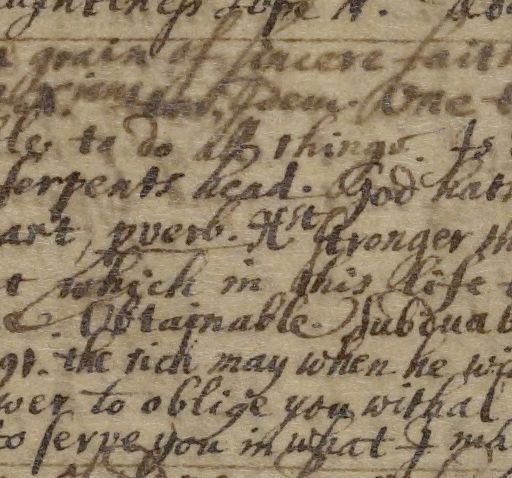 grain of sincere faith
One
to do all things. Is
serpents head. God hath
art, pverb. Xst stronger th
t which in this life
Obtainable. Subduab
91. the rich may when he wi
wer to oblige you withal
to serve you in what I ma